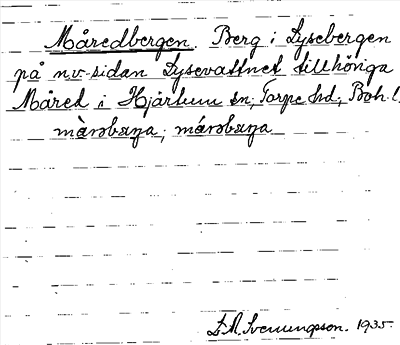 Måredbergen. Berg i Lysebergen
på nv-sidan Lysevattnet tillhöriga
Måred i Hjärtum sn, Torpe hd, Boh. l.
E. A. Svenungsson. 1935.